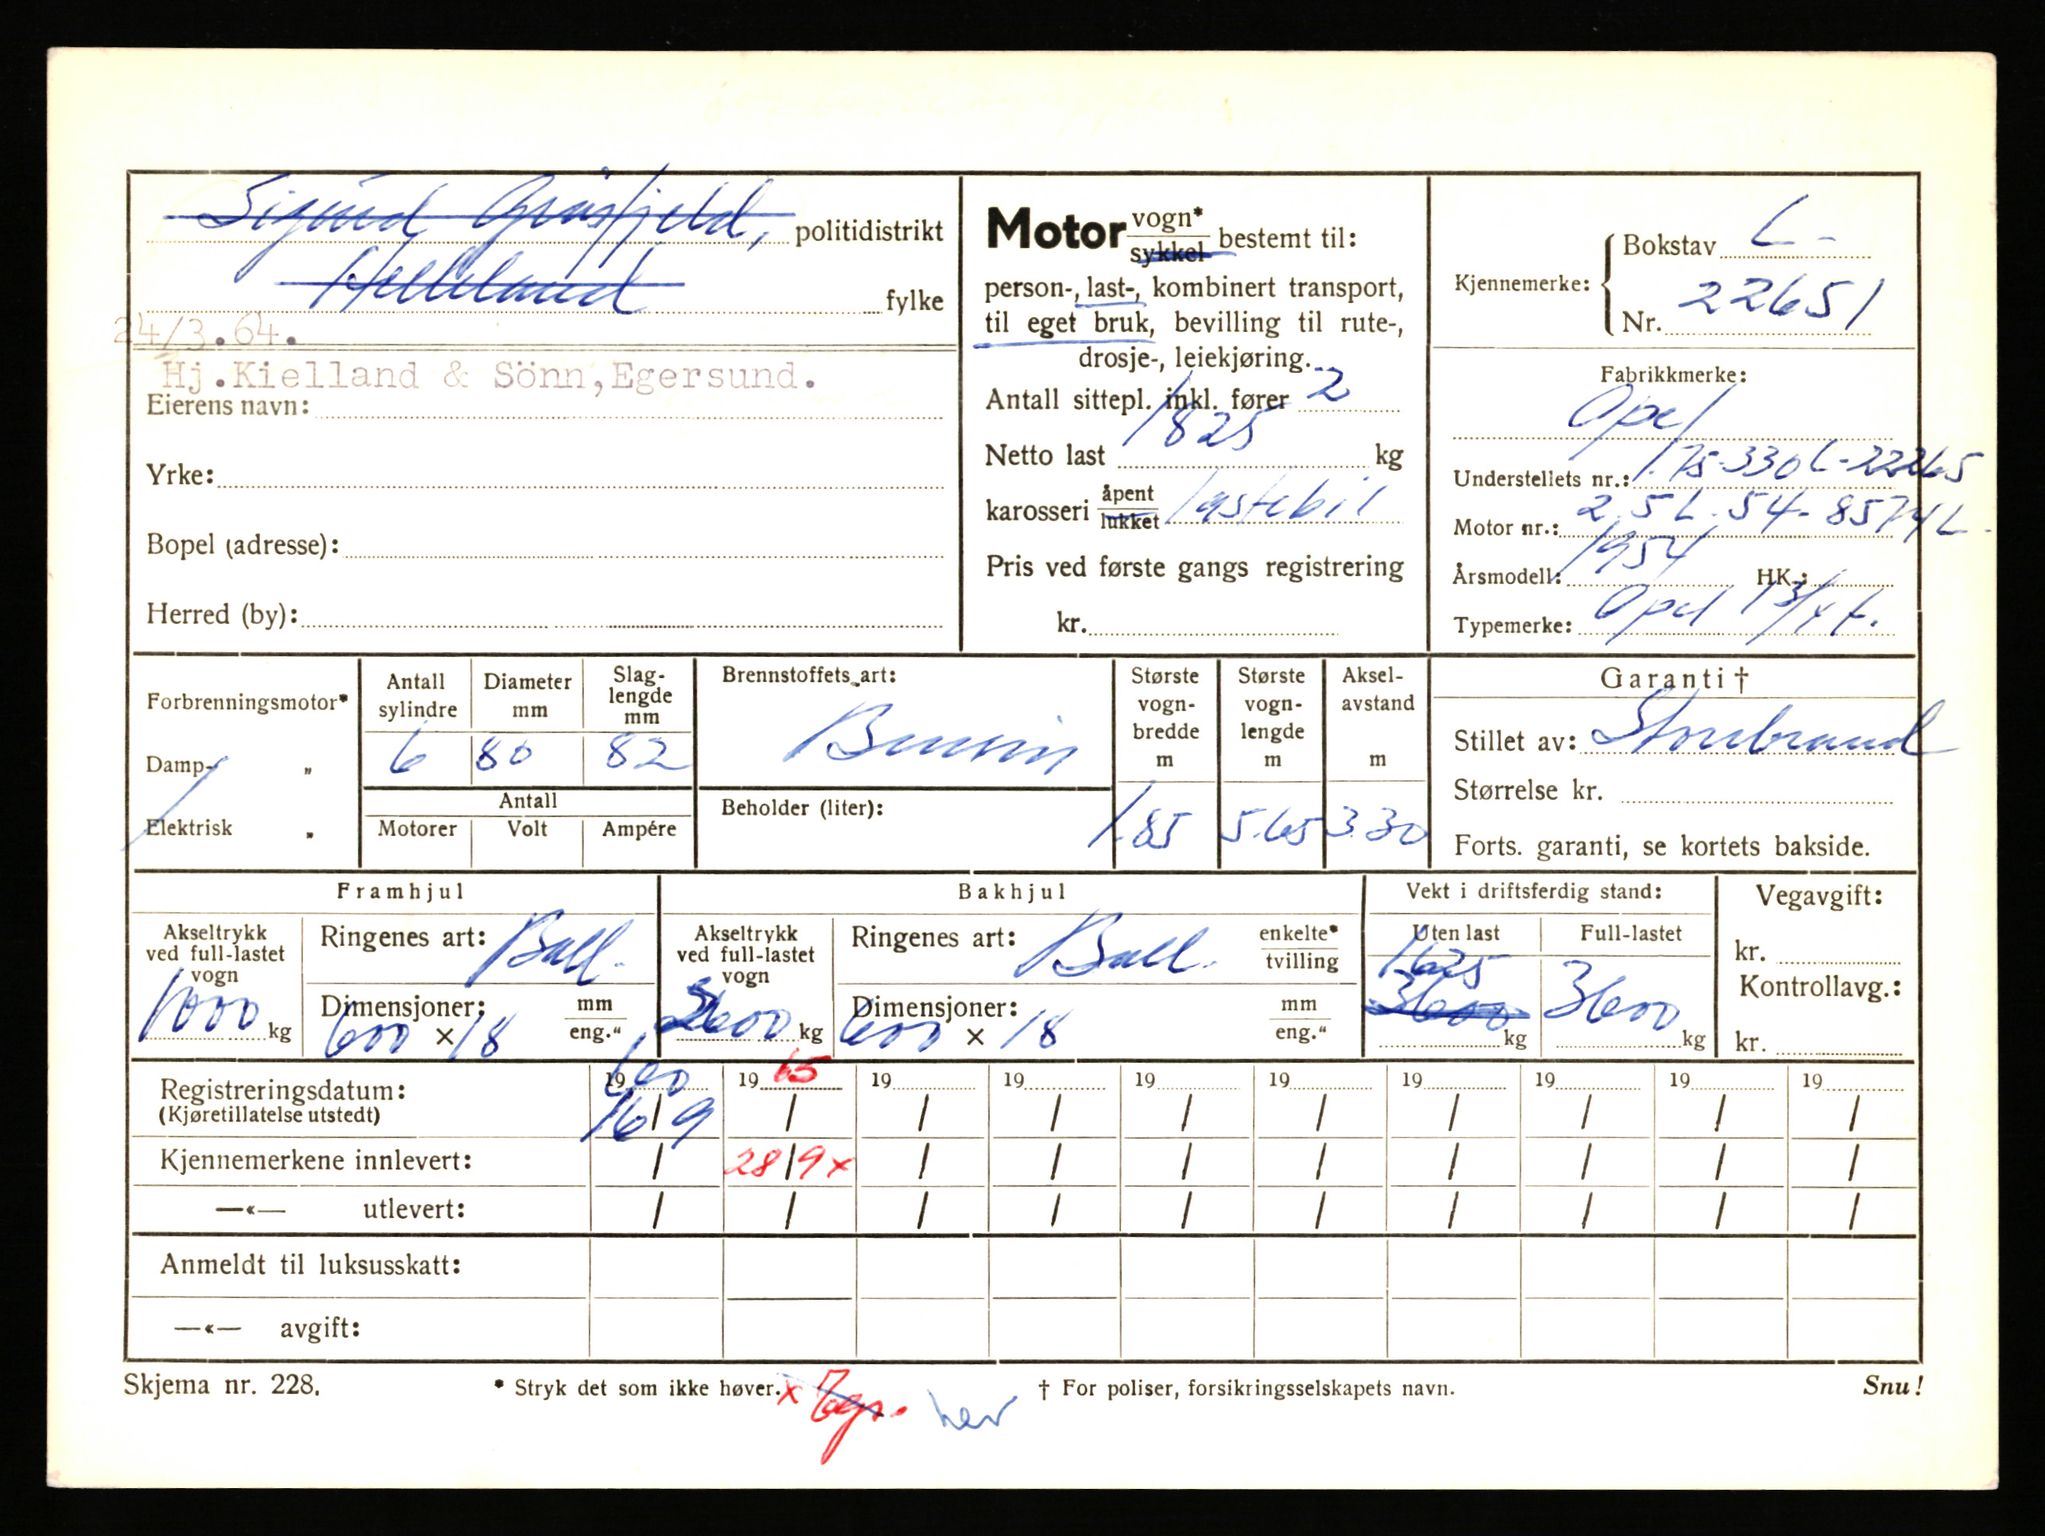 Sigurd Gåsfjeld, politidistrikt
Helleland fylke
24/3.64.
Hj.Kielland & Sönn,Egersund.
Eierens navn:
Yrke:
Bopel (adresse):
Herred (by):
Motor vogn* sykkel bestemt til:
person-, last-, kombinert transport,
til eget bruk, bevilling til rute-,
drosje-, leiekjøring.
Antall sittepl. inkl. fører 2
Netto last 1825 kg
karosseri åpent lukket lastebil
Pris ved første gangs registrering
kr.
Kjennemerke: Bokstav L-
Nr. 22651
Fabrikkmerke:
Opel
Understellets nr.: 1.75-330L-22265
Motor nr.: 2.5L.54-85741L-
Årsmodell: 1954 HK.:
Typemerke: Opel 1 3/4 t.
Forbrenningsmotor*
Damp- „
Elektrisk „
Antall sylindre 6
Diameter mm 80
Slag-lengde mm 82
Antall
Motorer Volt Ampére
Brennstoffets art:
Bensin
Beholder (liter):
Største vogn-bredde m 1.85
Største vogn-lengde m 5.65
Aksel-avstand m 3.30
Garanti †
Stillet av: Storebrand
Størrelse kr.
Forts. garanti, se kortets bakside.
Framhjul
Akseltrykk ved full-lastet vogn 1000 kg
Ringenes art: Ball.
Dimensjoner: 600 × 18 mm eng."
Bakhjul
Akseltrykk ved full-lastet vogn 2600 kg
Ringenes art: Ball. enkelte* tvilling
Dimensjoner: 600 × 18 mm eng."
Vekt i driftsferdig stand:
Uten last 1625 3600 kg
Full-lastet 3600 kg
Vegavgift:
kr.
Kontrollavg.:
kr.
Registreringsdatum: 19 60 19 65 19 19 19 19 19 19 19 19
(Kjøretillatelse utstedt) 16/9 / / / / / / / / /
Kjennemerkene innlevert: / 28/9 x / / / / / / / /
—«— utlevert: / / / / / / / / / /
Anmeldt til luksusskatt:
—«— avgift:
Skjema nr. 228.
* Stryk det som ikke høver.
x
her
† For poliser, forsikringsselskapets navn.
Snu!